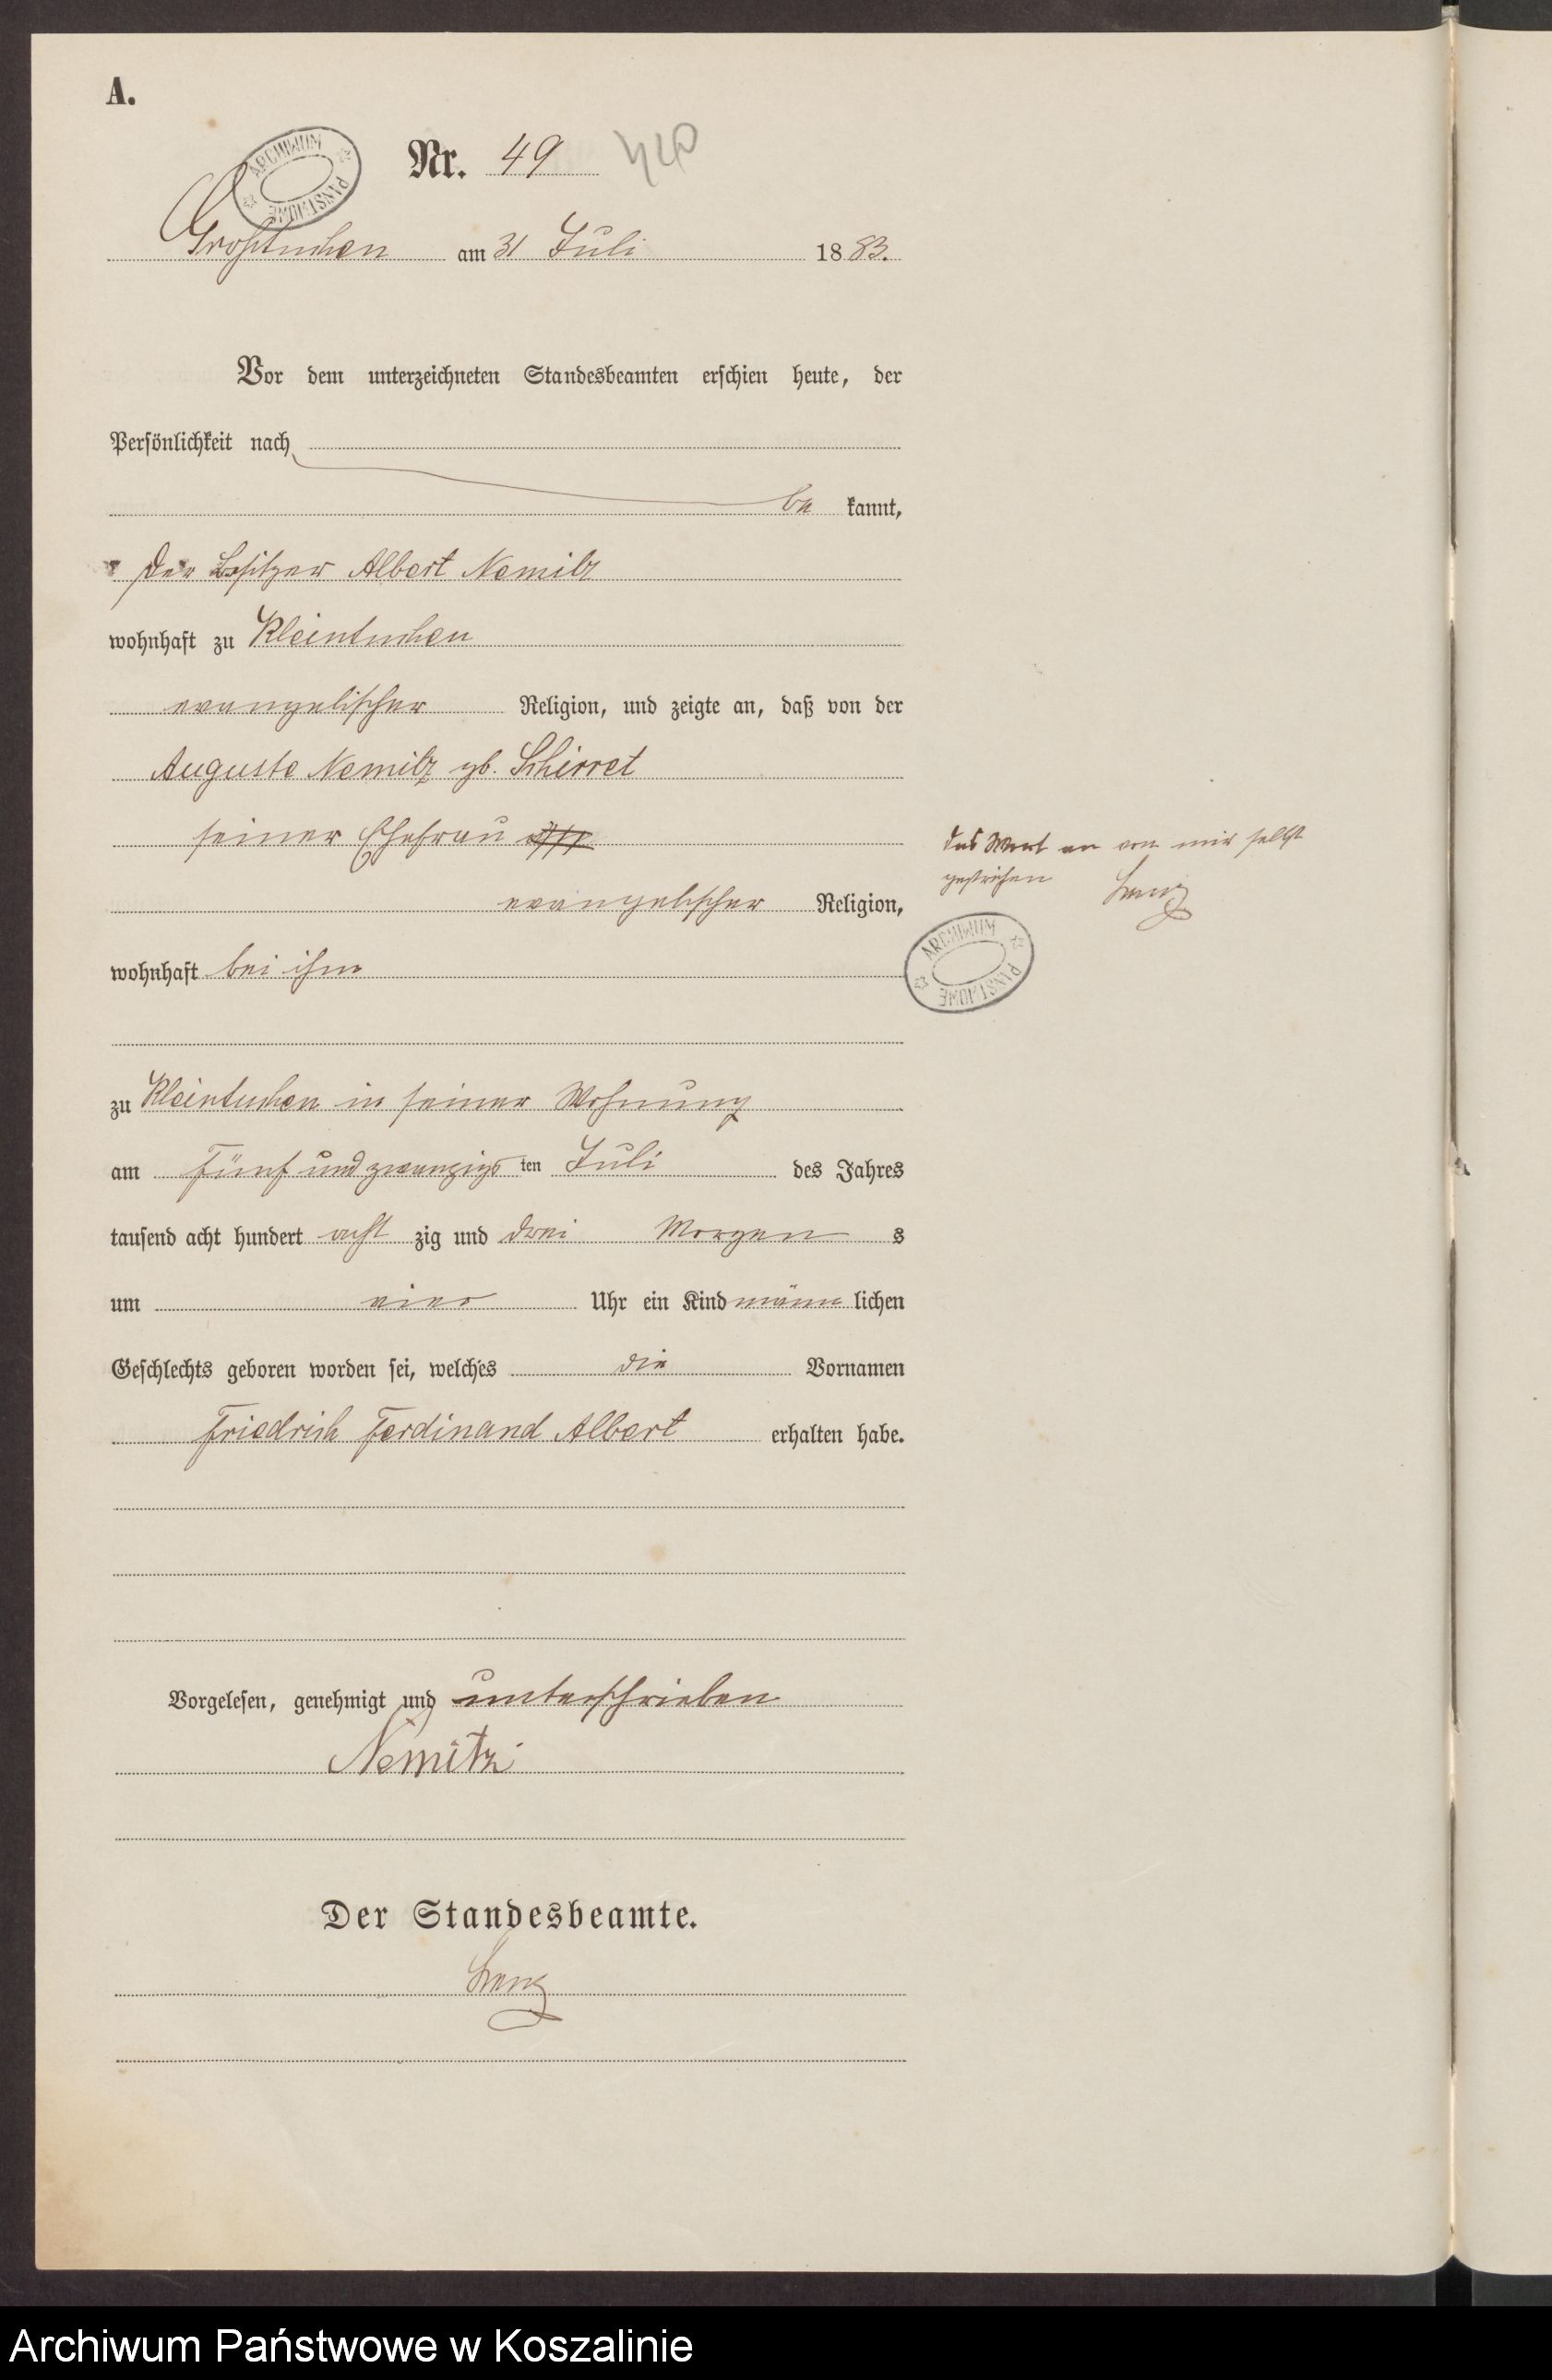 A.
ARCHIWUM PAŃSTWOWE
Nr. 49
Großtuchen am 31 Juli 1883.
Vor dem unterzeichneten Standesbeamten erschien heute, der
Persönlichkeit nach
be kannt,
der Besitzer Albert Nemitz
wohnhaft zu Kleintuchen
evangelischer Religion, und zeigte an, daß von der
Auguste Nemitz gb. Schirret
seiner Ehefrau
evangelischer Religion,
wohnhaft bei ihm
zu Kleintuchen in seiner Wohnung
am fünf und zwanzigs ten Juli des Jahres
tausend acht hundert acht zig und drei Morgen s
um vier Uhr ein Kind männ lichen
Geschlechts geboren worden sei, welches die Vornamen
Friedrich Ferdinand Albert erhalten habe.
Vorgelesen, genehmigt und unterschrieben
Nemitz
Der Standesbeamte.
das Wort von mir selbst
gestrichen
ARCHIWUM PAŃSTWOWE
Archiwum Państwowe w Koszalinie